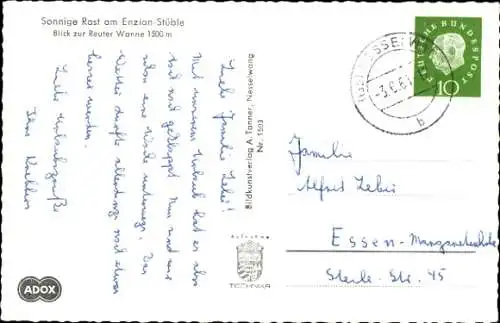 Sonnige Rast am Enzian-Stüble
Blick zur Reuter Wanne 1500 m
Liebe Familie Zebis!
Mit unserem Urlaub hat es also
doch noch geklappt. Nun sind wir
schon eine Woche unterwegs. Das
Wetter dürfte allerdings noch etwas
besser werden.
Liebe Urlaubsgrüße
Ihre
Bildkunstverlag A. Tanner, Nesselwang
Nr. 1503
Aufnahme
TECHNIKA
ADOX
DEUTSCHE BUNDESPOST
10
b
Familie
Alfred Zebis
Essen-Margaretenhöhe
Steile-Str. 45